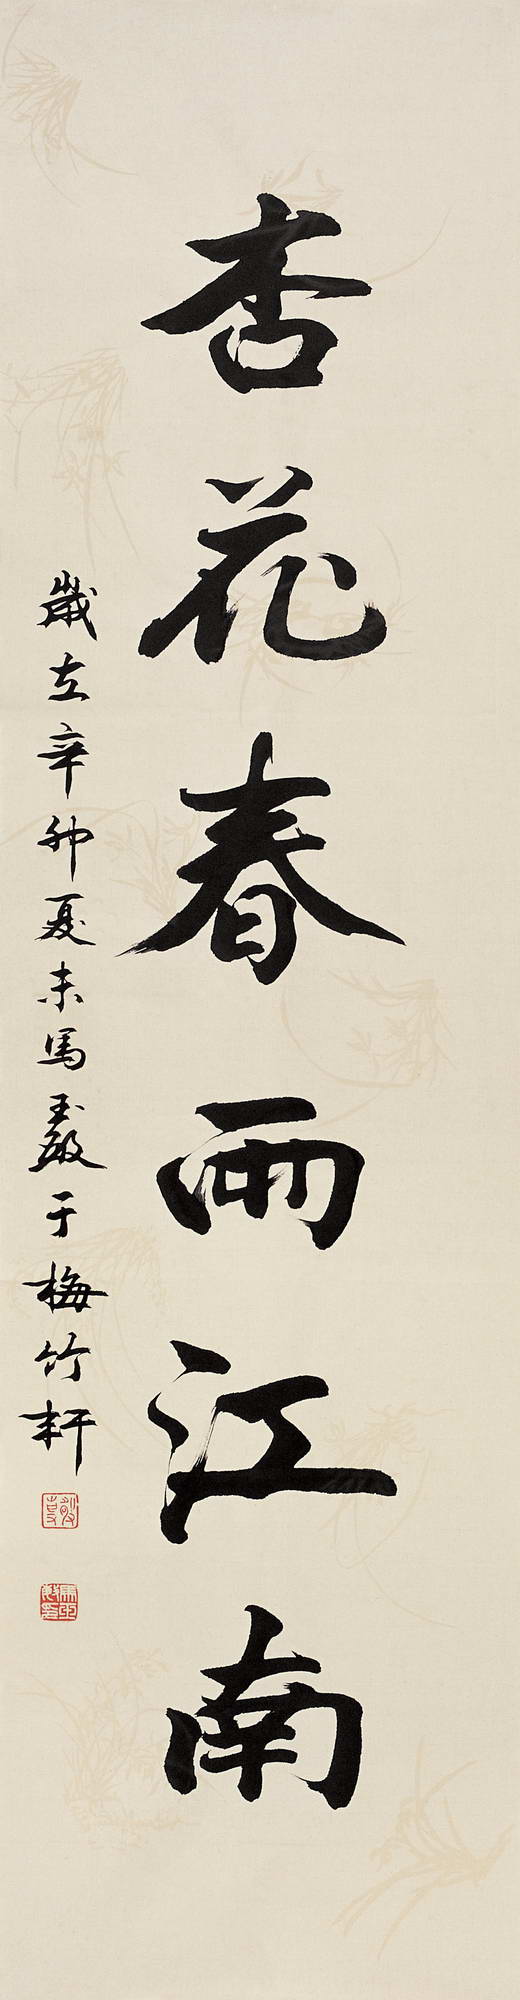 杏花春雨江南
歲在辛卯夏末馬敬于梅竹軒